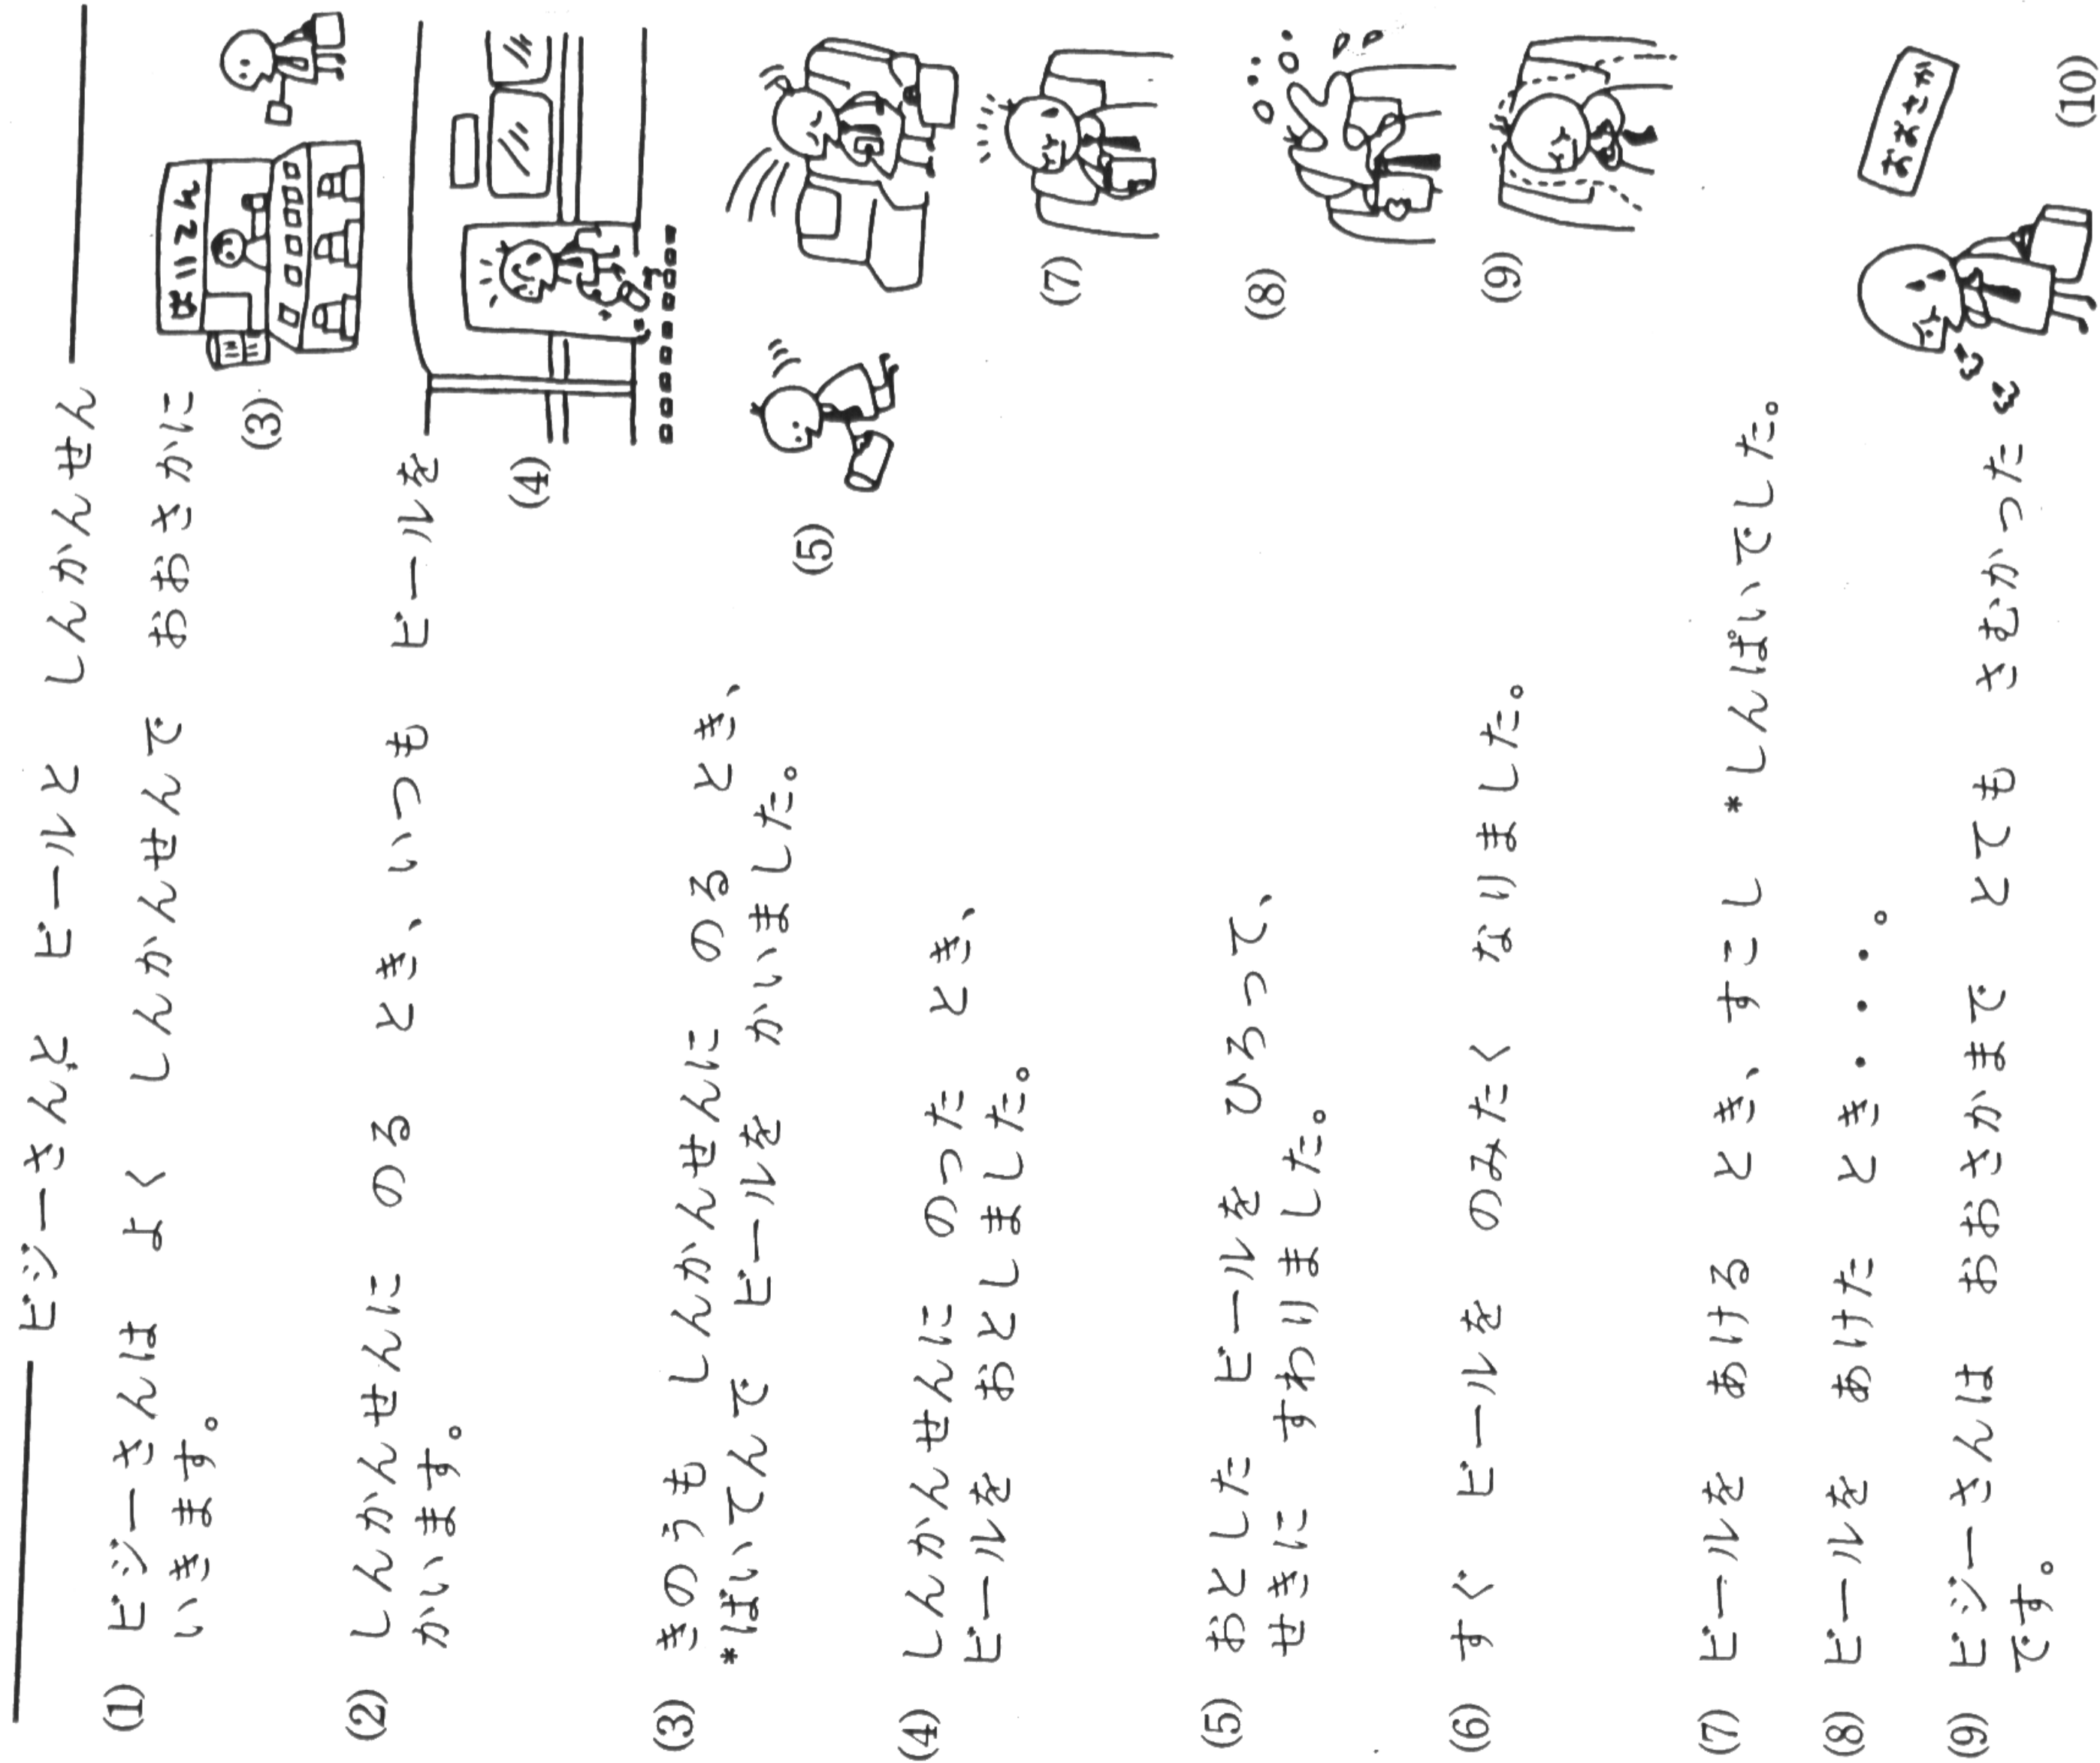 ビジーさんと ビールと しんかんせん
(1) ビジーさんは よく しんかんせんで おおさかに
いきます。
(2) しんかんせんに のる とき、いつも ビールを
かいます。
(3) きのうも しんかんせんに のる とき、
*ばいてんで ビールを かいました。
(4) しんかんせんに のった とき、
ビールを おとしました。
(5) おとした ビールを ひろって、
せきに すわりました。
(6) すぐ ビールを のみたく なりました。
(7) ビールを あける とき、すこし *しんぱいでした。
(8) ビールを あけた とき・・・。
(9) ビジーさんは おおさかまで とても さむかった
です。
ばいてん
(3)
(4)
(5)
(7)
(8)
(9)
おおさか
(10)